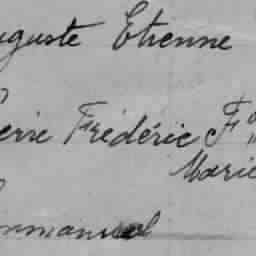 uguste Etienne
ierre Frédéric F
Marie
mmanuel